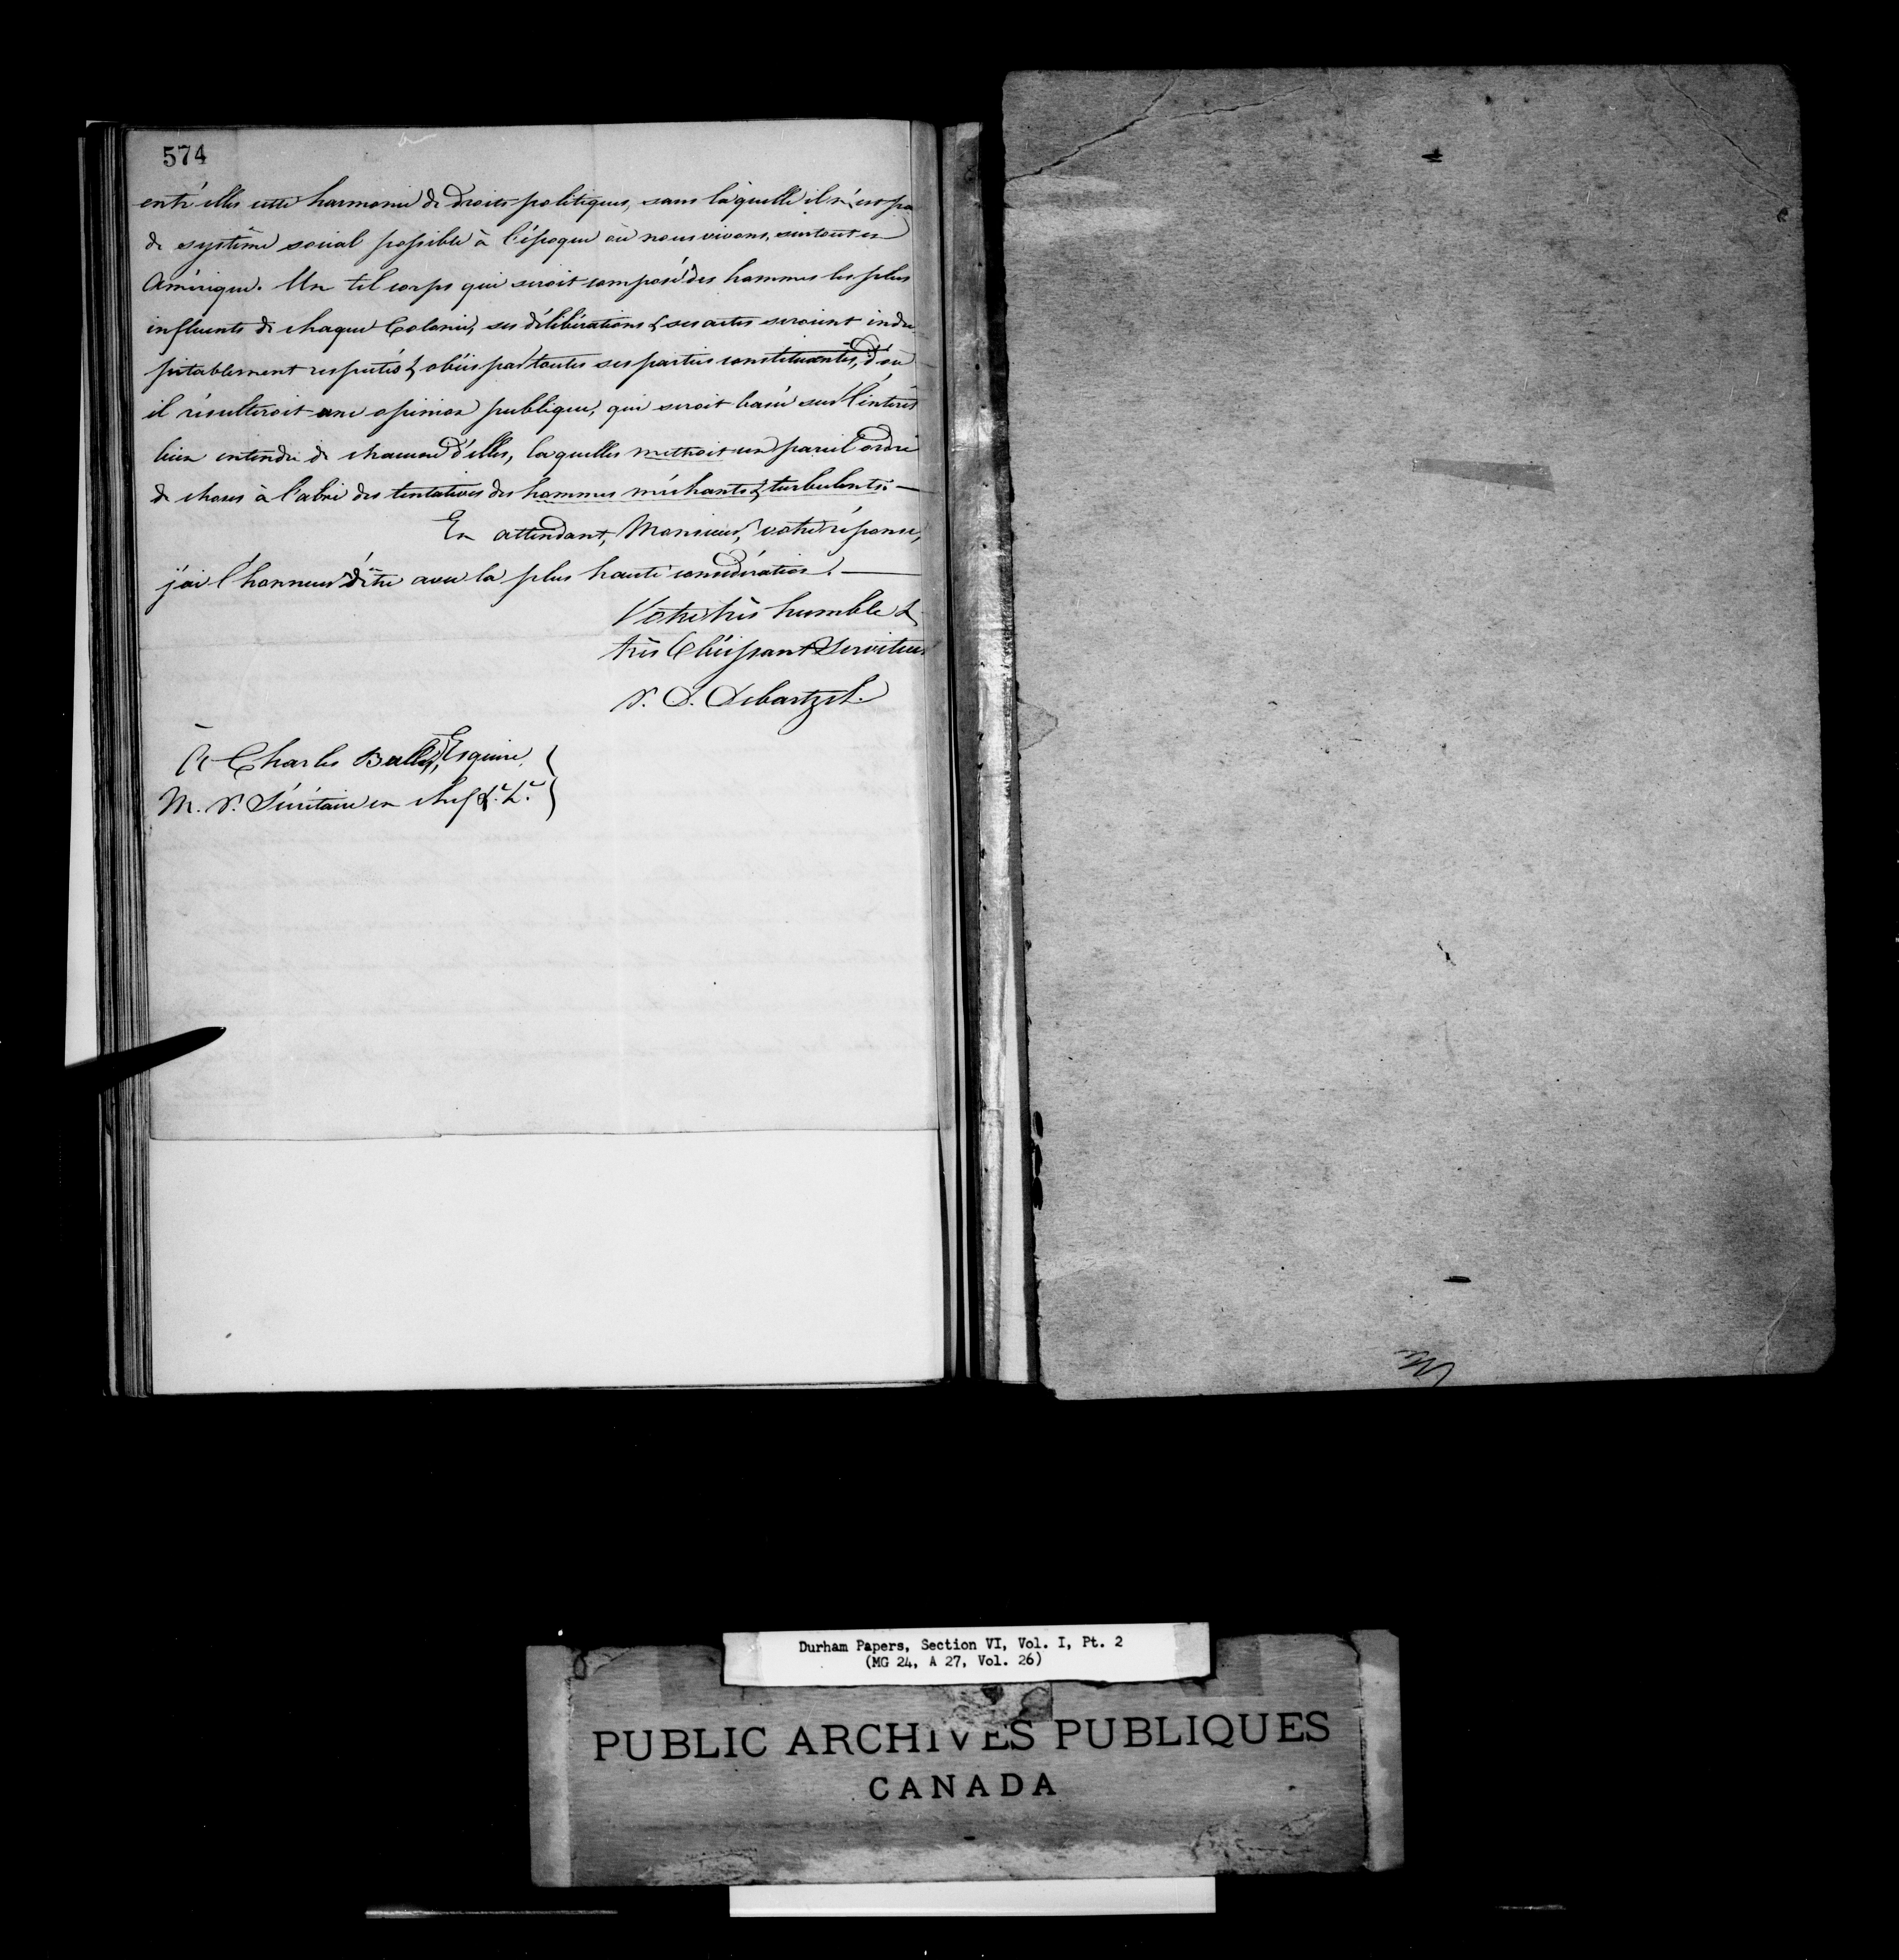 574
entr'elles cette harmonie de droits politiques, sans laquelle il n'est pas
de systême social possible à l'époque où nous vivons, surtout en
Amérique. Un tel corps qui seroit composé des hommes les plus
influents de chaque Colonie, ses délibérations & ses actes seroient indu-
pitablement respectés & obéis par toutes ses parties constituantes, d'où
il résulteroit une opinion publique, qui seroit basée sur l'intérêt
bien entendu de chacune d'elles, laquelles mettroit un pareil ordre
de choses à l'abri des tentatives des hommes méchants & turbulents. —
En attendant, Monsieur, votre réponse,
j'ai l'honneur d'être avec la plus haute considération. —
Votre très humble &
très Obéissant Serviteur
P. D. Debartzch.
À Charles Buller, Esquire,
M. P. Sécrétaire en chef &c. &c.
Durham Papers, Section VI, Vol. I, Pt. 2
(MG 24, A 27, Vol. 26)
PUBLIC ARCHIVES PUBLIQUES
CANADA